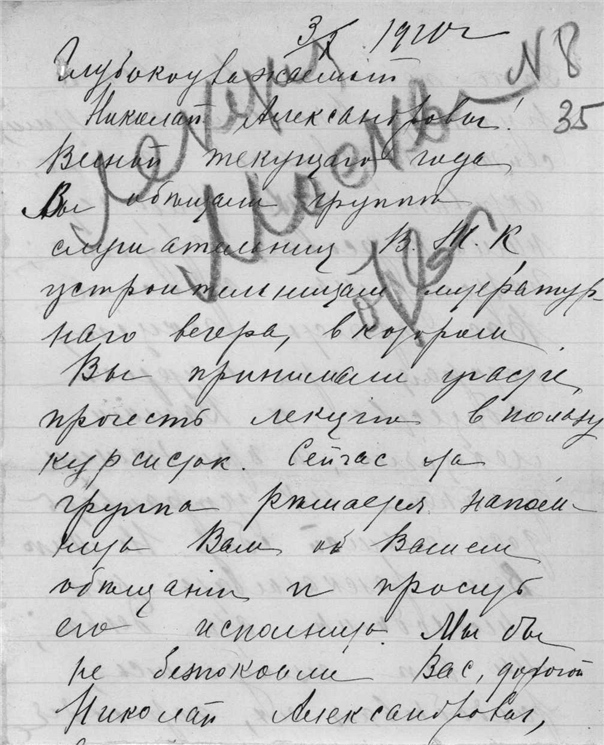 3/X 1910 г
Глубокоуважаемый
№ 8
Николай Александровичъ!
35
Весной текущаго года
Вы обѣщали группѣ
слушательницъ В. Ж. К,
устроительницамъ литератур-
наго вечера, в котором
Вы принимали участіе,
прочесть лекцію в пользу
курсисток. Сейчас та
группа рѣшается напом-
нить Вам об Вашем
обѣщаніи и просить
его исполнить. Мы бы
не безпокоили Вас, дорогой
Николай Александрович,